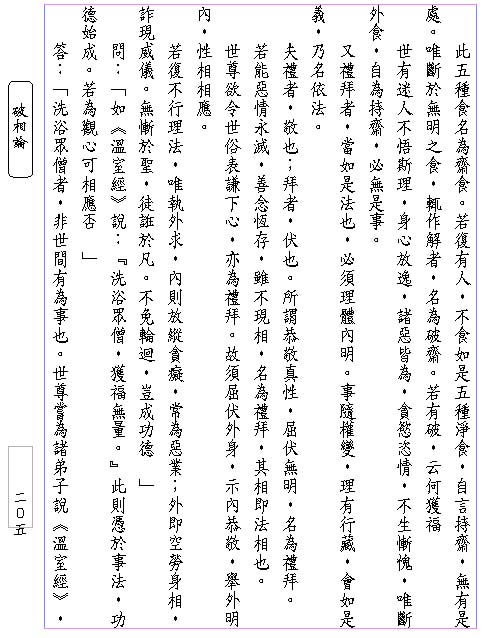 此五種食名為齋食。若復有人，不食如是五種淨食，自言持齋，無有是
處。唯斷於無明之食，輒作解者，名為破齋。若有破，云何獲福
世有迷人不悟斯理，身心放逸，諸惡皆為，貪慾恣情，不生慚愧，唯斷
外食，自為持齋，必無是事。
又禮拜者，當如是法也，必須理體內明。事隨權變，理有行藏，會如是
義，乃名依法。
夫禮者，敬也；拜者，伏也。所謂恭敬真性，屈伏無明，名為禮拜。
若能惡情永滅，善念恆存，雖不現相，名為禮拜，其相即法相也。
世尊欲令世俗表謙下心，亦為禮拜。故須屈伏外身，示內恭敬，舉外明
內，性相相應。
若復不行理法，唯執外求，內則放縱貪癡，常為惡業；外即空勞身相，
詐現威儀。無慚於聖，徒誑於凡。不免輪迴，豈成功德　」
問：「如《溫室經》說：『洗浴眾僧，獲福無量。』此則憑於事法，功
德始成。若為觀心可相應否　」
答：「洗浴眾僧者，非世間有為事也。世尊嘗為諸弟子說《溫室經》，
破相論
二〇五